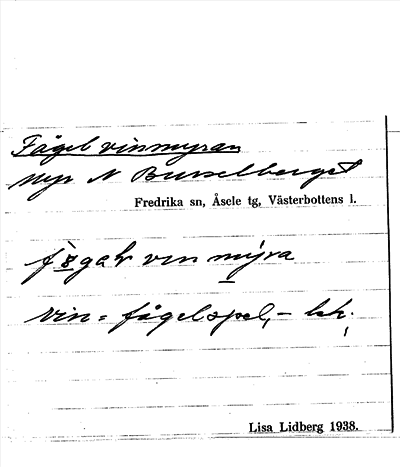 Fågelvinmyran
myr N Burselberget
Fredrika sn, Åsele tg, Västerbottens l.
vin myra
vin = fågelspel, – bh.
Lisa Lidberg 1938.